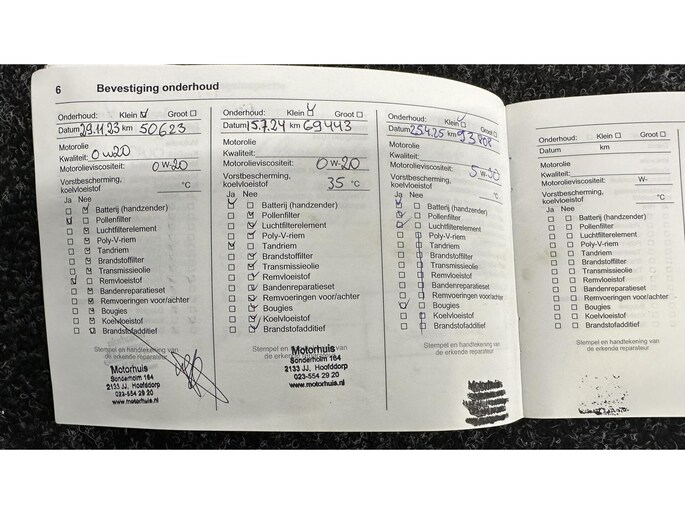 6 Bevestiging onderhoud
Onderhoud: Klein Groot
Datum 29.11.23 km 50623
Motorolie
Kwaliteit: 0w20
Motorolieviscositeit: 0W-20
Vorstbescherming,
koelvloeistof °C
Ja Nee
Batterij (handzender)
Pollenfilter
Luchtfilterelement
Poly-V-riem
Tandriem
Brandstoffilter
Transmissieolie
Remvloeistof
Bandenreparatieset
Remvoeringen voor/achter
Bougies
Koelvloeistof
Brandstofadditief
Stempel en handtekening van
de erkende reparateur
Motorhuis
Sonderholm 164
2133 JJ, Hoofddorp
023-554 29 20
www.motorhuis.nl
Onderhoud: Klein Groot
Datum 15.7.24 km 69443
Motorolie
Kwaliteit:
Motorolieviscositeit: 0W-20
Vorstbescherming,
koelvloeistof 35 °C
Ja Nee
Batterij (handzender)
Pollenfilter
Luchtfilterelement
Poly-V-riem
Tandriem
Brandstoffilter
Transmissieolie
Remvloeistof
Bandenreparatieset
Remvoeringen voor/achter
Bougies
Koelvloeistof
Brandstofadditief
Stempel en handtekening van
de erkende reparateur
Motorhuis
Sonderholm 164
2133 JJ, Hoofddorp
023-554 29 20
www.motorhuis.nl
Onderhoud: Klein Groot
Datum 25.4.25 km 93808
Motorolie
Kwaliteit:
Motorolieviscositeit: 5W-30
Vorstbescherming,
koelvloeistof °C
Ja Nee
Batterij (handzender)
Pollenfilter
Luchtfilterelement
Poly-V-riem
Tandriem
Brandstoffilter
Transmissieolie
Remvloeistof
Bandenreparatieset
Remvoeringen voor/achter
Bougies
Koelvloeistof
Brandstofadditief
Stempel en handtekening van
de erkende reparateur
Motorhuis
Onderhoud: Klein Groot
Datum km
Motorolie
Kwaliteit:
Motorolieviscositeit: W-
Vorstbescherming,
koelvloeistof °C
Ja Nee
Batterij (handzender)
Pollenfilter
Luchtfilterelement
Poly-V-riem
Tandriem
Brandstoffilter
Transmissieolie
Remvloeistof
Bandenreparatieset
Remvoeringen voor/achter
Bougies
Koelvloeistof
Brandstofadditief
Stempel en handtekening van
de erkende reparateur